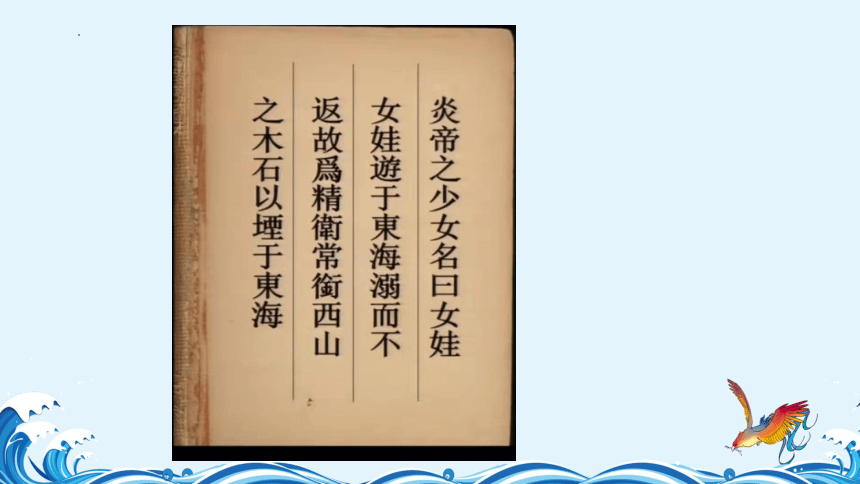 炎帝之少女名曰女娃
女娃遊于東海溺而不
返故爲精衛常銜西山
之木石以堙于東海